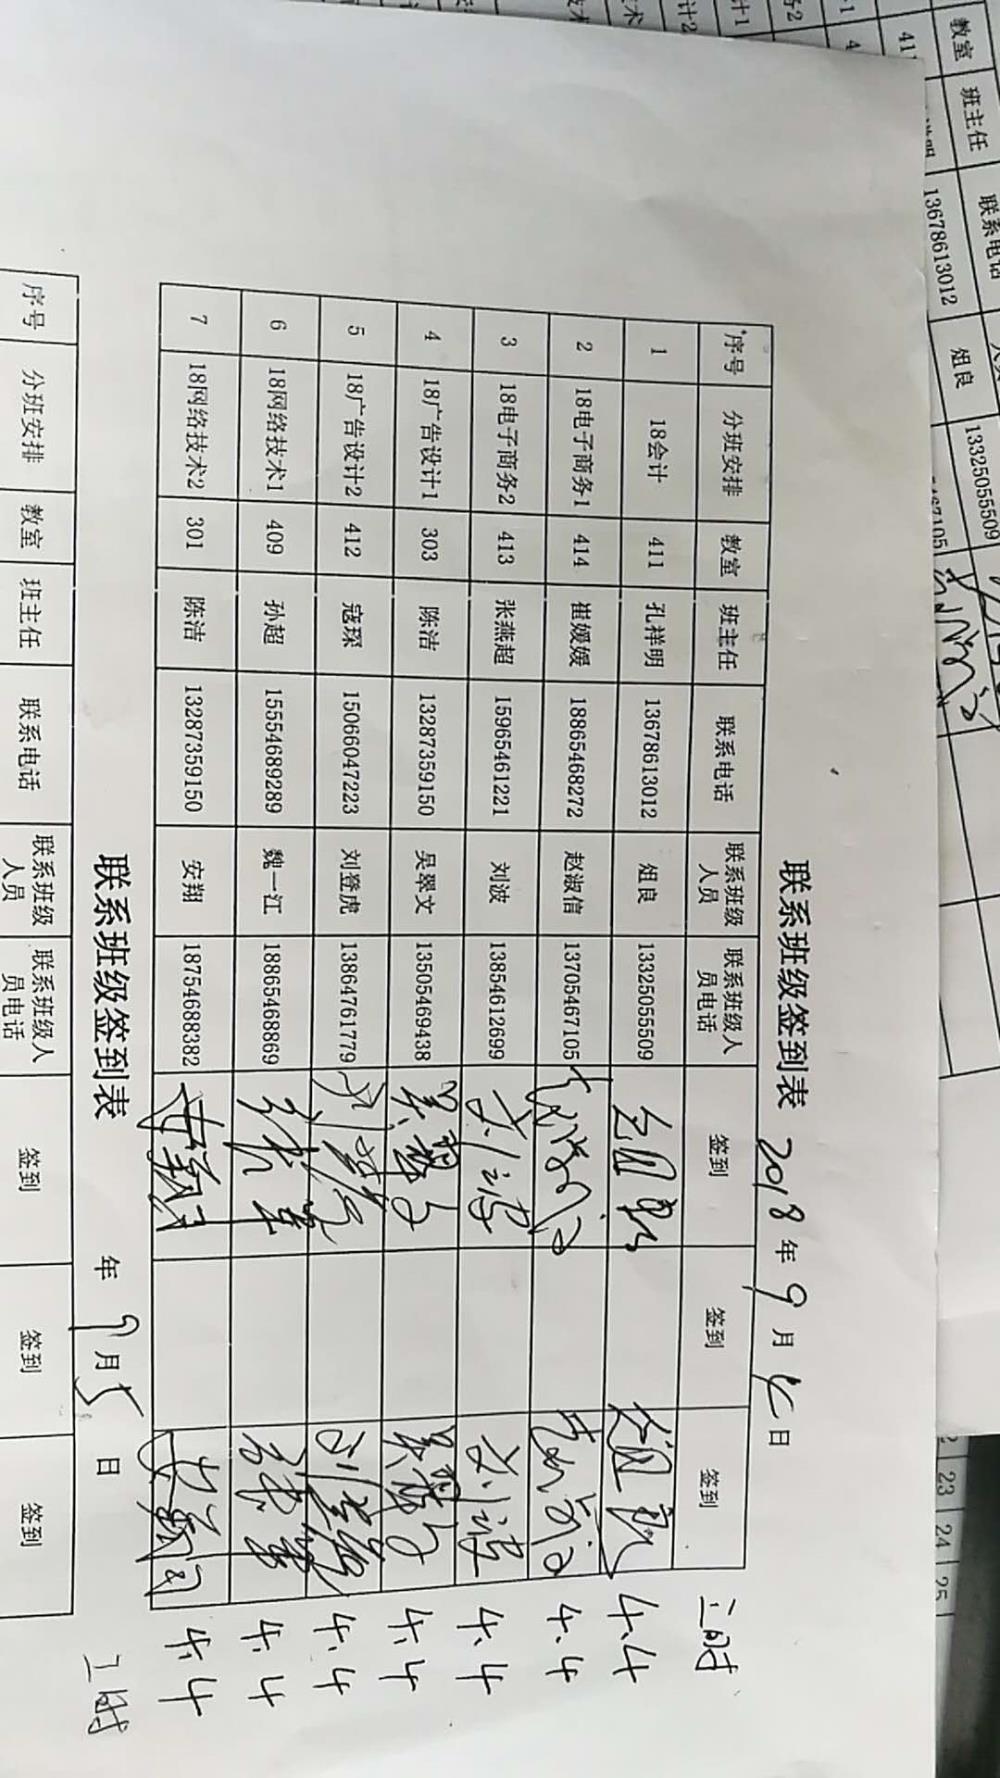 联系班级签到表 2018年9月4日
序号 分班安排 教室 班主任 联系电话 联系班级人员 联系班级人员电话 签到 签到 签到
1 18会计 411 孔祥明 13678613012 俎良 13325055509 俎良 俎良 4.4
2 18电子商务1 414 崔媛媛 18865468272 赵淑信 13705467105 4.4
3 18电子商务2 413 张燕超 15965461221 刘波 13854612699 刘波 刘波 4.4
4 18广告设计1 303 陈洁 13287359150 吴翠文 13505469438 吴翠文 吴翠文 4.4
5 18广告设计2 412 寇琛 15066047223 刘登虎 13864761779 刘登虎 刘登虎 4.4
6 18网络技术1 409 孙超 15554689289 魏一江 18865468869 4.4
7 18网络技术2 301 陈洁 13287359150 安翔 18754688382 安翔 安翔 4.4
联系班级签到表 年9月5日
序号 分班安排 教室 班主任 联系电话 联系班级人员 联系班级人员电话 签到 签到 签到
教室 班主任 联系电话
411 13678613012 俎良 13325055509
23 24 25